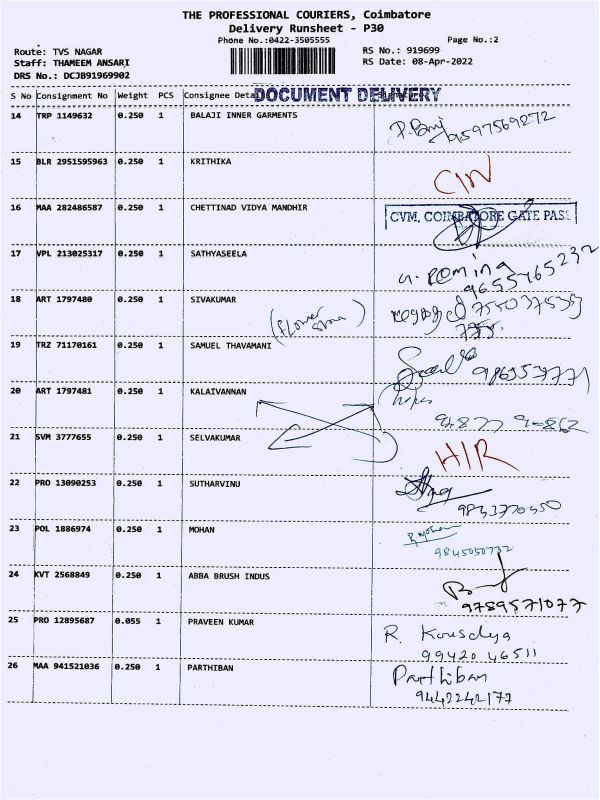 THE PROFESSIONAL COURIERS, Coimbatore
Delivery Runsheet - P30
Phone No.:0422-3505555 Page No.:2
Route: TVS NAGAR RS No.: 919699
Staff: THAMEEM ANSARI RS Date: 08-Apr-2022
DRS No.: DCJB91969902
S No Consignment No Weight PCS Consignee Details
DOCUMENT DELIVERY
14 TRP 1149632 0.250 1 BALAJI INNER GARMENTS 9597569272
15 BLR 2951595963 0.250 1 KRITHIKA
16 MAA 282486587 0.250 1 CHETTINAD VIDYA MANDHIR CVM, COIMBATORE GATE PASS
17 VPL 213025317 0.250 1 SATHYASEELA
18 ART 1797480 0.250 1 SIVAKUMAR
19 TRZ 71170161 0.250 1 SAMUEL THAVAMANI
20 ART 1797481 0.250 1 KALAIVANNAN
21 SVM 3777655 0.250 1 SELVAKUMAR H/R
22 PRO 13090253 0.250 1 SUTHARVINU
23 POL 1886974 0.250 1 MOHAN
9845050732
24 KVT 2568849 0.250 1 ABBA BRUSH INDUS
9789571077
25 PRO 12895687 0.055 1 PRAVEEN KUMAR R. Kousalya
99420 46511
26 MAA 941521036 0.250 1 PARTHIBAN Parthiban
9442242177